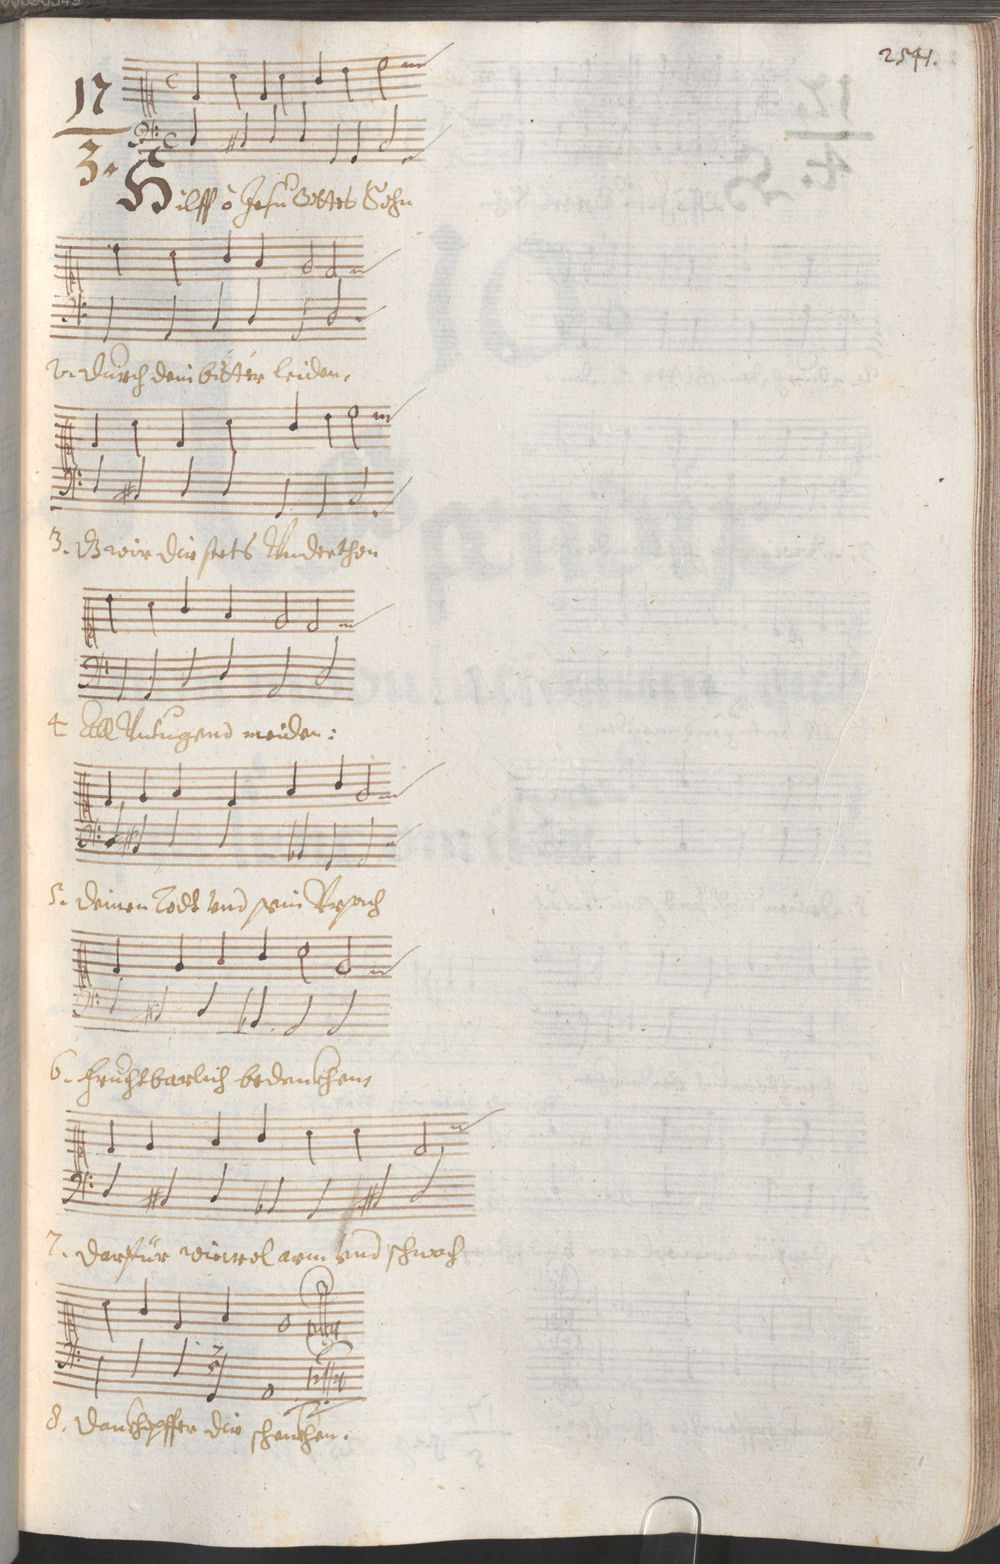 2541.
17
3.
Hilff ô Jesu Gottes Sohn
2. durch dein bitter leiden,
3. dz wir dir stets Underthon
4 All Untugend meiden:
5. deinen Todt und sein Ursach
6. fruchtbarlich bedenckhen,
7. darfür wiewol arm und schwach
8. danckhopffer dir schenckhen.